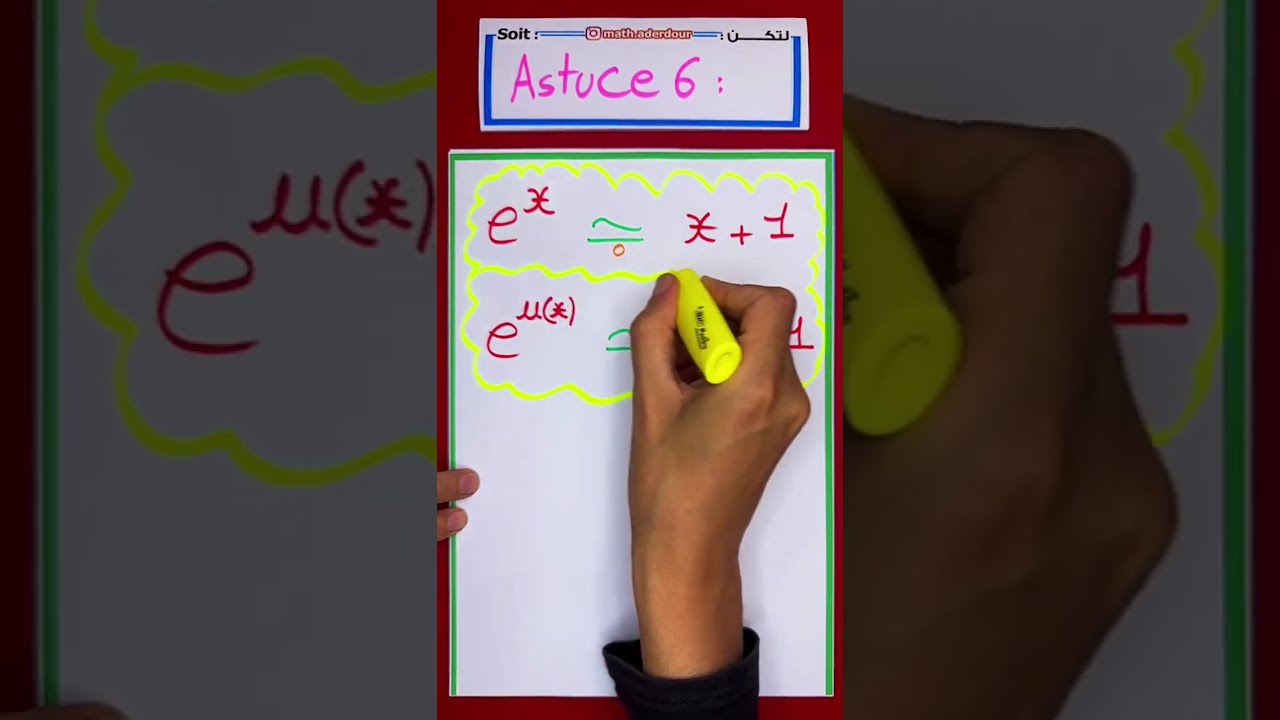 Soit : math.aderdour لتكن :
Astuce 6 :
e^x ≃ x + 1
0
e^u(x) ≃ 1